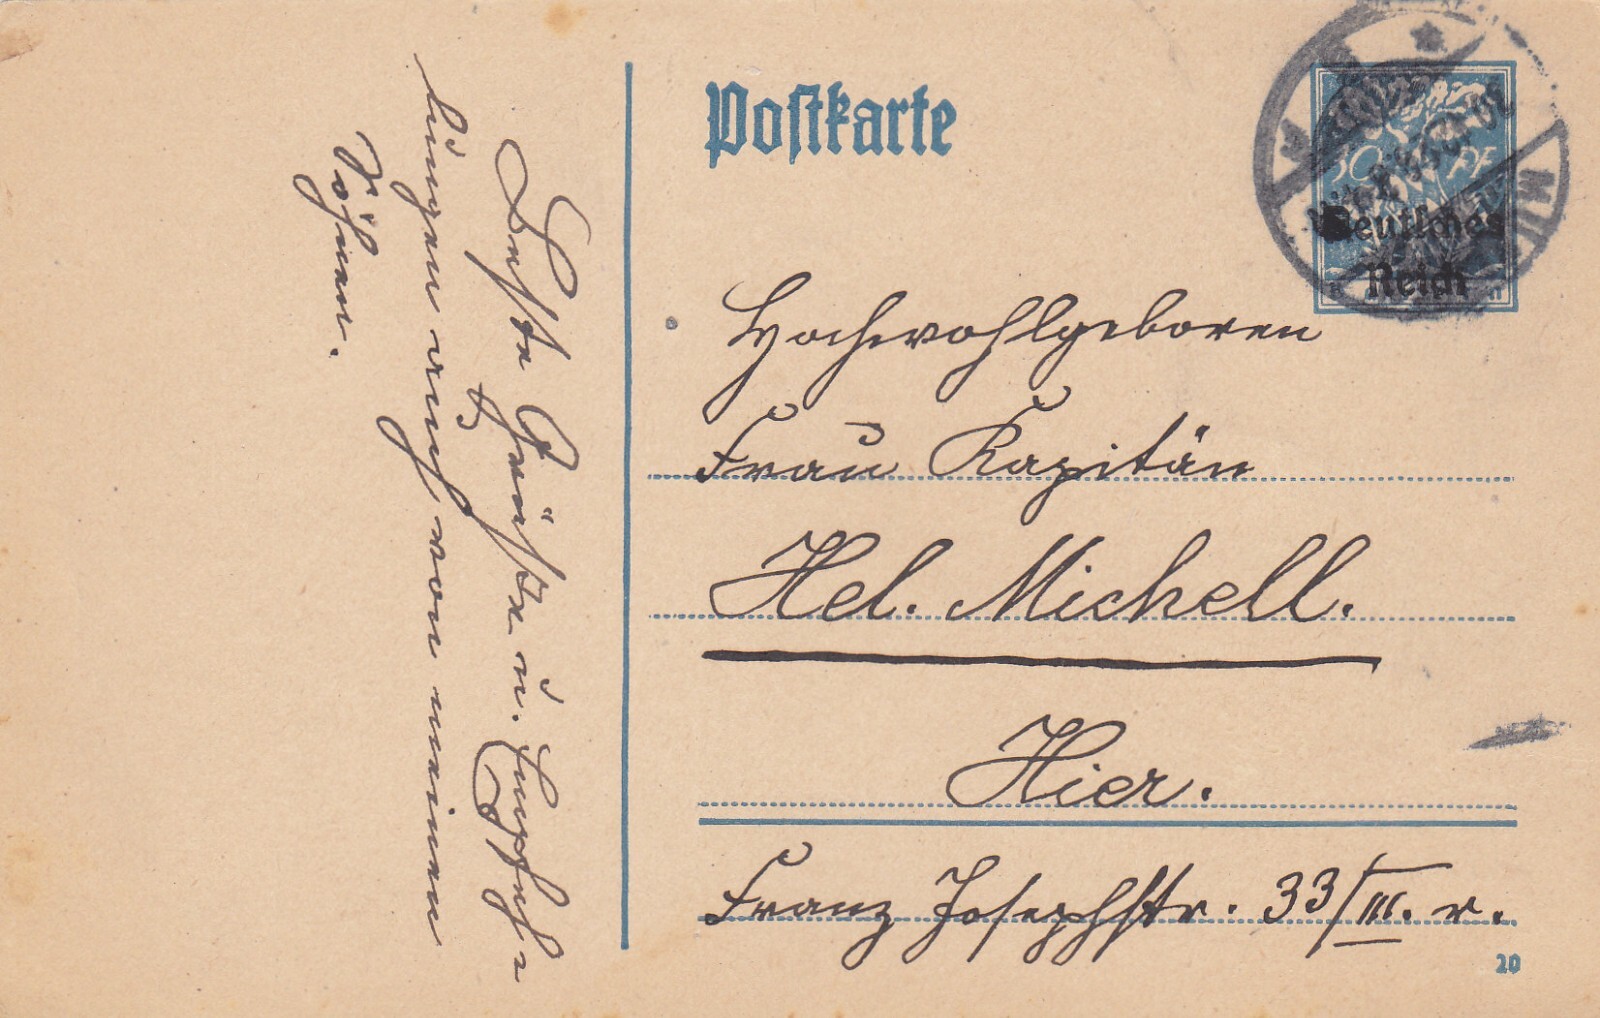 Beste Grüße u. Empfeh-
lungen auch von meinen
Söhnen.
Postkarte
30 PF
Deutsches
Reich
Hochwohlgeboren
Frau Kapitän
Hel. Michell.
Hier.
Franz Josephstr. 33/III. r.
20